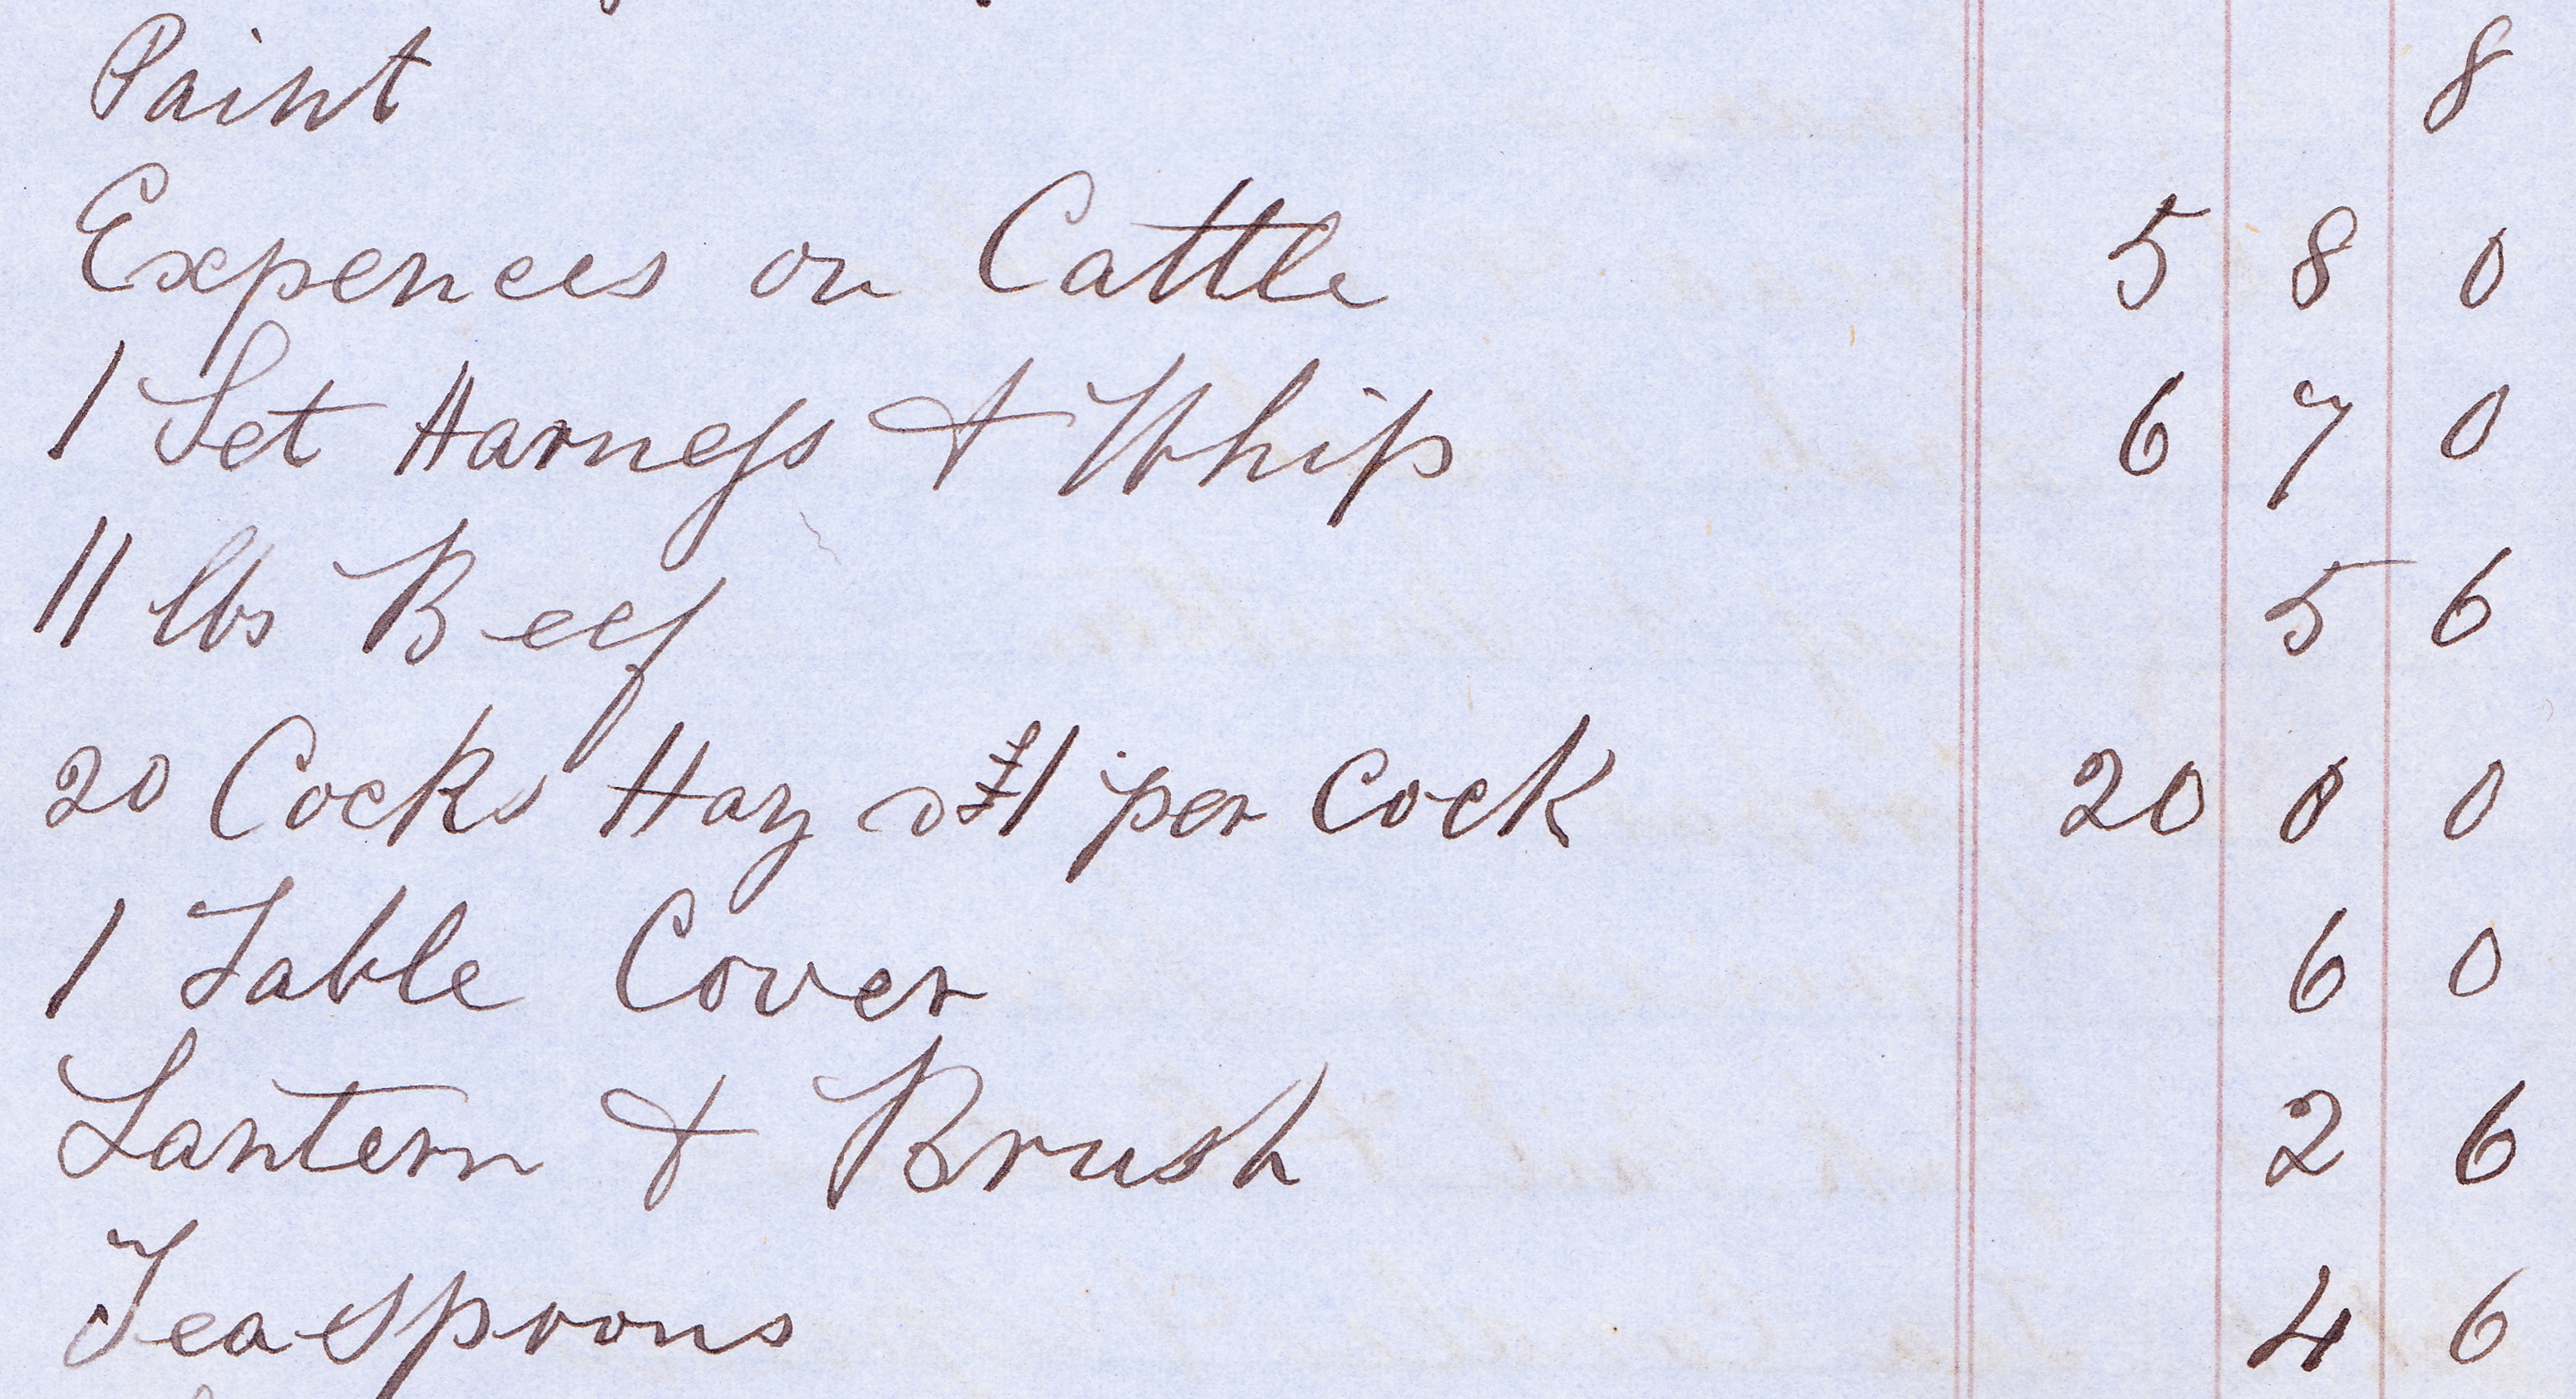 Paint 8
Expences on Cattle 5 8 0
1 Set Harness & Whip 6 7 0
11 lbs Beef 5 6
20 Cocks Hay @ £1 per Cock 20 0 0
1 Table Cover 6 0
Lantern & Brush 2 6
Tea Spoons 4 6